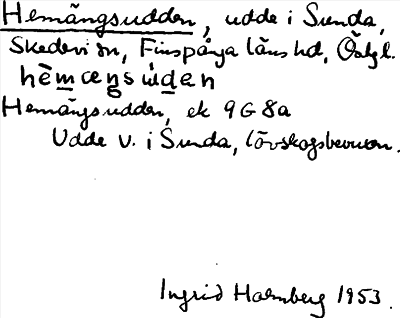 Hemängsudden, udde i Sunda,
Skedevi sn, Finspånga läns hd, Östgl.
hèmængsùden
Hemängsudden, ek 9G8a
Udde v. i Sunda, lövskogsbevuxen.
Ingrid Holmberg 1953.